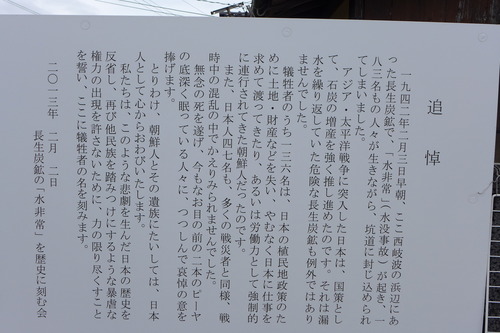 追悼
一九四二年二月三日早朝、ここ西岐波の浜辺にあ
った長生炭鉱で、“水非常”（水没事故）が起き、一
八三名もの人々が生きながら、坑道に封じ込められ
てしまいました。
アジア・太平洋戦争に突入した日本は、国策とし
て、石炭の増産を強く推し進めたのです。それは漏
水を繰り返していた危険な長生炭鉱も例外ではあり
ませんでした。
犠牲者のうち一三六名は、日本の植民地政策のた
めに土地・財産などを失い、やむなく日本に仕事を
求めて渡ってきたり、あるいは労働力として強制的
に連行されてきた朝鮮人だったのです。
また、日本人四七名も、多くの戦災者と同様、戦
時中の混乱の中でかえりみられませんでした。
無念の死を遂げ、今もなお目の前の二本のピーヤ
の底深く眠っている人々に、つつしんで哀悼の意を
捧げます。
とりわけ、朝鮮人とその遺族にたいしては、日本
人として心からおわびいたします。
私たちは、このような悲劇を生んだ日本の歴史を
反省し、再び他民族を踏みつけにするような暴虐な
権力の出現を許さないために、力の限り尽くすこと
を誓い、ここに犠牲者の名を刻みます。
二〇一三年 二月 二日
長生炭鉱の“水非常”を歴史に刻む会